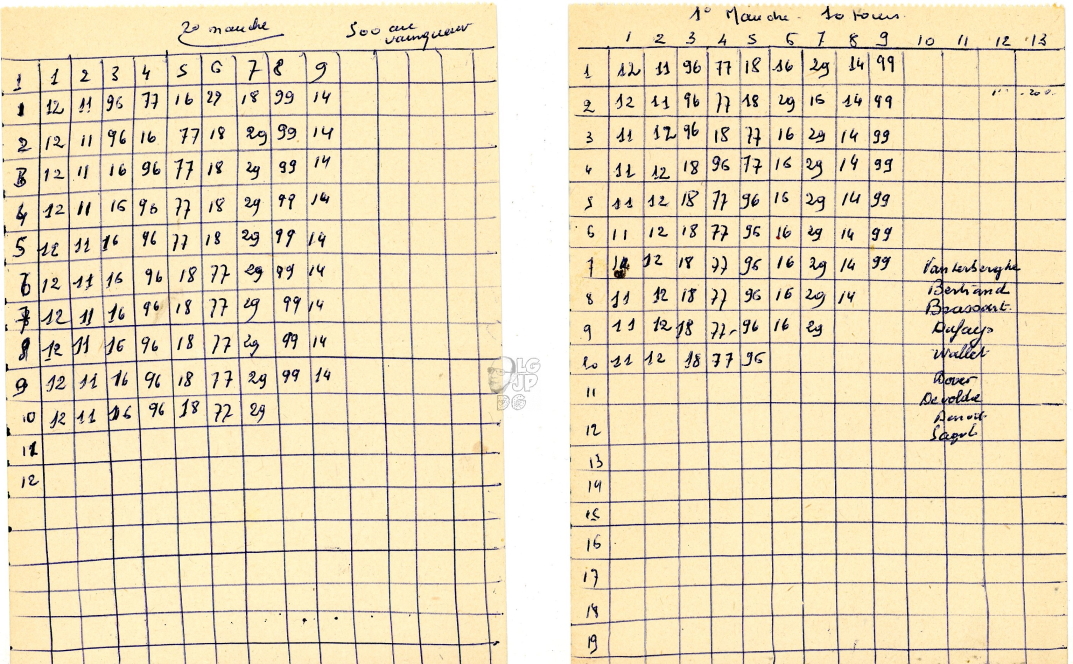 2º manche 500 au vainqueur
1 1 2 3 4 5 6 7 8 9
1 12 11 96 77 16 29 18 99 14
2 12 11 96 16 77 18 29 99 14
3 12 11 16 96 77 18 29 99 14
4 12 11 16 96 77 18 29 99 14
5 12 11 16 96 77 18 29 99 14
6 12 11 16 96 18 77 29 99 14
7 12 11 16 96 18 77 29 99 14
8 12 11 16 96 18 77 29 99 14
9 12 11 16 96 18 77 29 99 14
10 12 11 16 96 18 77 29
11
12
LG
JP
DG
1º Manche - 10 tours
1 2 3 4 5 6 7 8 9 10 11 12 13
1 12 11 96 77 18 16 29 14 99
2 12 11 96 77 18 29 16 14 99
3 11 12 96 18 77 16 29 14 99
4 11 12 18 96 77 16 29 14 99
5 11 12 18 77 96 16 29 14 99
6 11 12 18 77 96 16 29 14 99
7 11 12 18 77 96 16 29 14 99
8 11 12 18 77 96 16 29 14
9 11 12 18 77 96 16 29
10 11 12 18 77 96
11
12
13
14
15
16
17
18
19
Vanterberghe
Bertrand
Brassart
Dufays
Wallet
Bover
Devolder
Benoit
Sagot